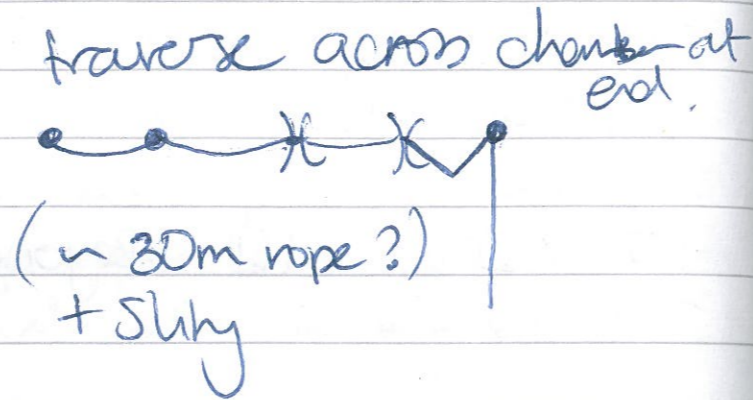 traverse across chamber at
end.
(~ 30m rope?)
+ sling